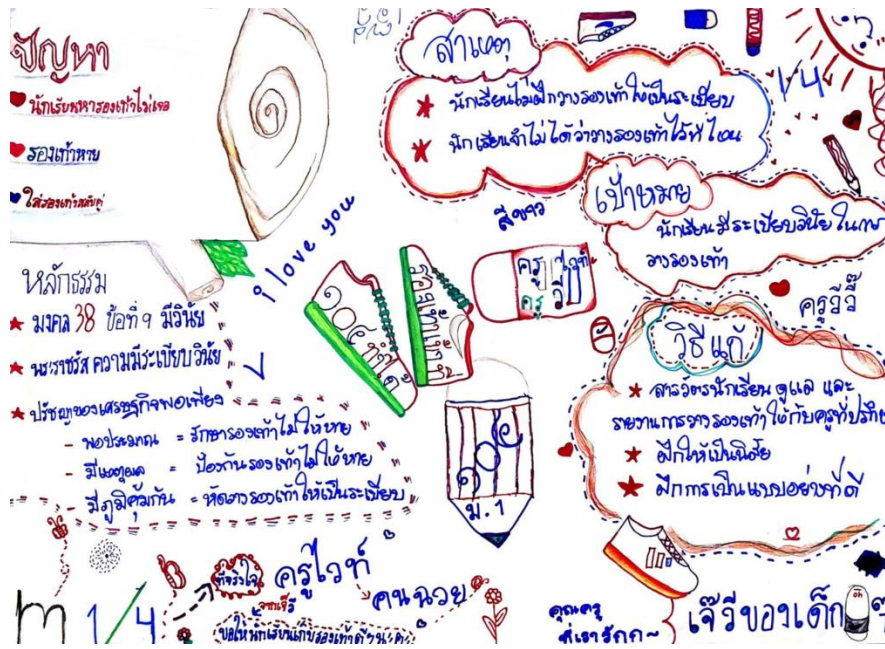 ปัญหา
นักเรียนหารองเท้าไม่เจอ
รองเท้าหาย
ใส่รองเท้าสลับคู่
หลักธรรม
มงคล 38 ข้อที่ 9 มีวินัย
ความมีระเบียบวินัย
ปรัชญาของเศรษฐกิจพอเพียง
- พอประมาณ = รักษารองเท้าไม่ให้หาย
- มีเหตุผล = ป้องกันรองเท้าไม่ให้หาย
- มีภูมิคุ้มกัน = หัดวางรองเท้าให้เป็นระเบียบ
สาเหตุ
นักเรียนไม่ฝึกวางรองเท้าให้เป็นระเบียบ
นักเรียนจำไม่ได้ว่าวางรองเท้าไว้ที่ไหน
1/4
เป้าหมาย
นักเรียนมีระเบียบวินัยในการ
วางรองเท้า
สีขาว
i love you
๑๐๔ ทำได้
ครู
ครูวีวี่
วิธีแก้
สารวัตรนักเรียน ดูแล และ
รายงานการวางรองเท้าให้กับครูที่ปรึก
ฝึกให้เป็นนิสัย
ฝึกการเป็นแบบอย่างที่ดี
๑๐๔
ม.1
ที่จริงใจ
ครูไวท์
คนฉวย
ขอให้นักเรียนเก็บรองเท้าดีๆนะคะ
m 1/4
คุณครู
ที่เรารักก~
เจ๊วีของเด็กๆ